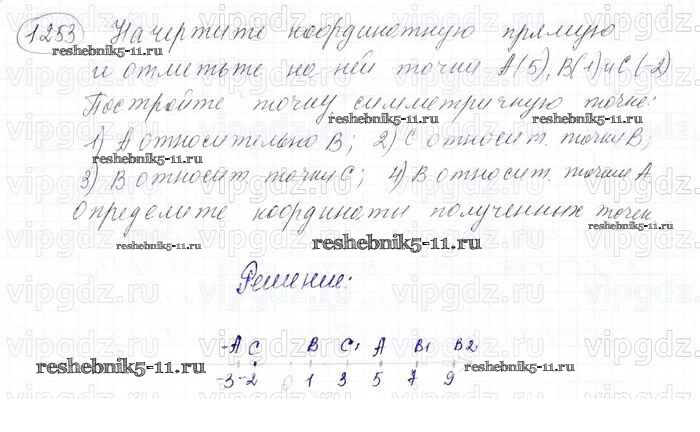 1253 Начертите координатную прямую
и отметьте на ней точки A(5), B(1) и C(-2)
Постройте точку симметричную точке:
1) A относительно B; 2) C относит. точки B;
3) B относит. точки C; 4) B относит. точки A
Определите координаты полученных точек
Решение:
-A C B C1 A B1 B2
-3 -2 0 1 3 5 7 9
reshebnik5-11.ru
reshebnik5-11.ru
reshebnik5-11.ru
reshebnik5-11.ru
reshebnik5-11.ru
reshebnik5-11.ru
reshebnik5-11.ru
reshebnik5-11.ru
reshebnik5-11.ru
reshebnik5-11.ru
vipgdz.ru